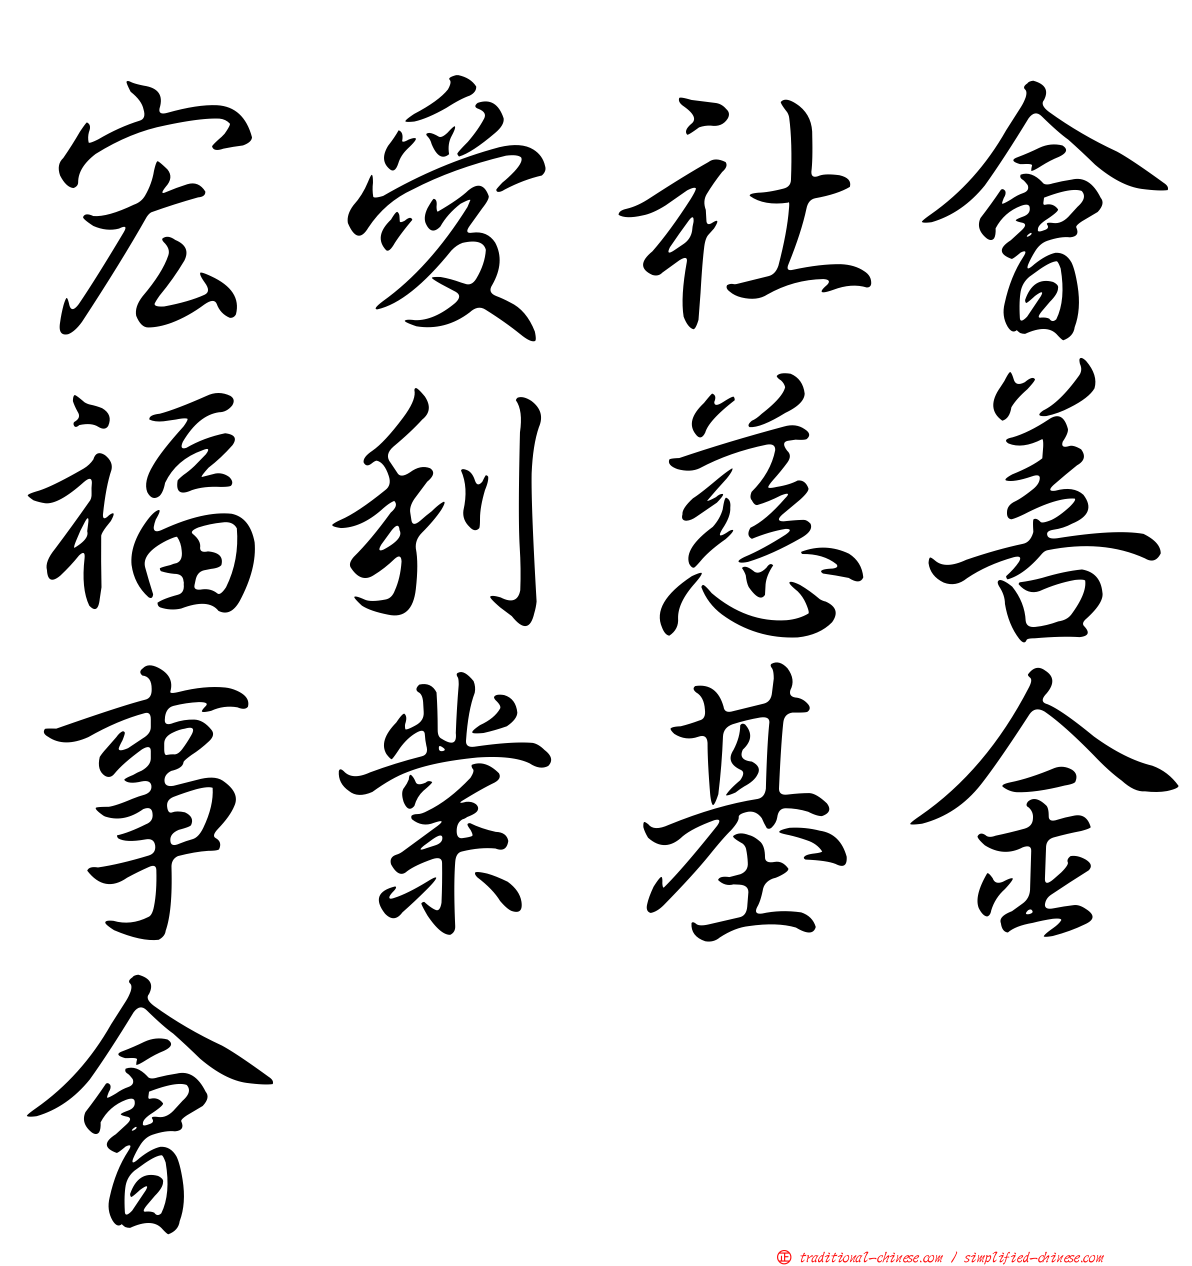 宏愛社會
福利慈善
事業基金
會
正 traditional-chinese.com / simplified-chinese.com